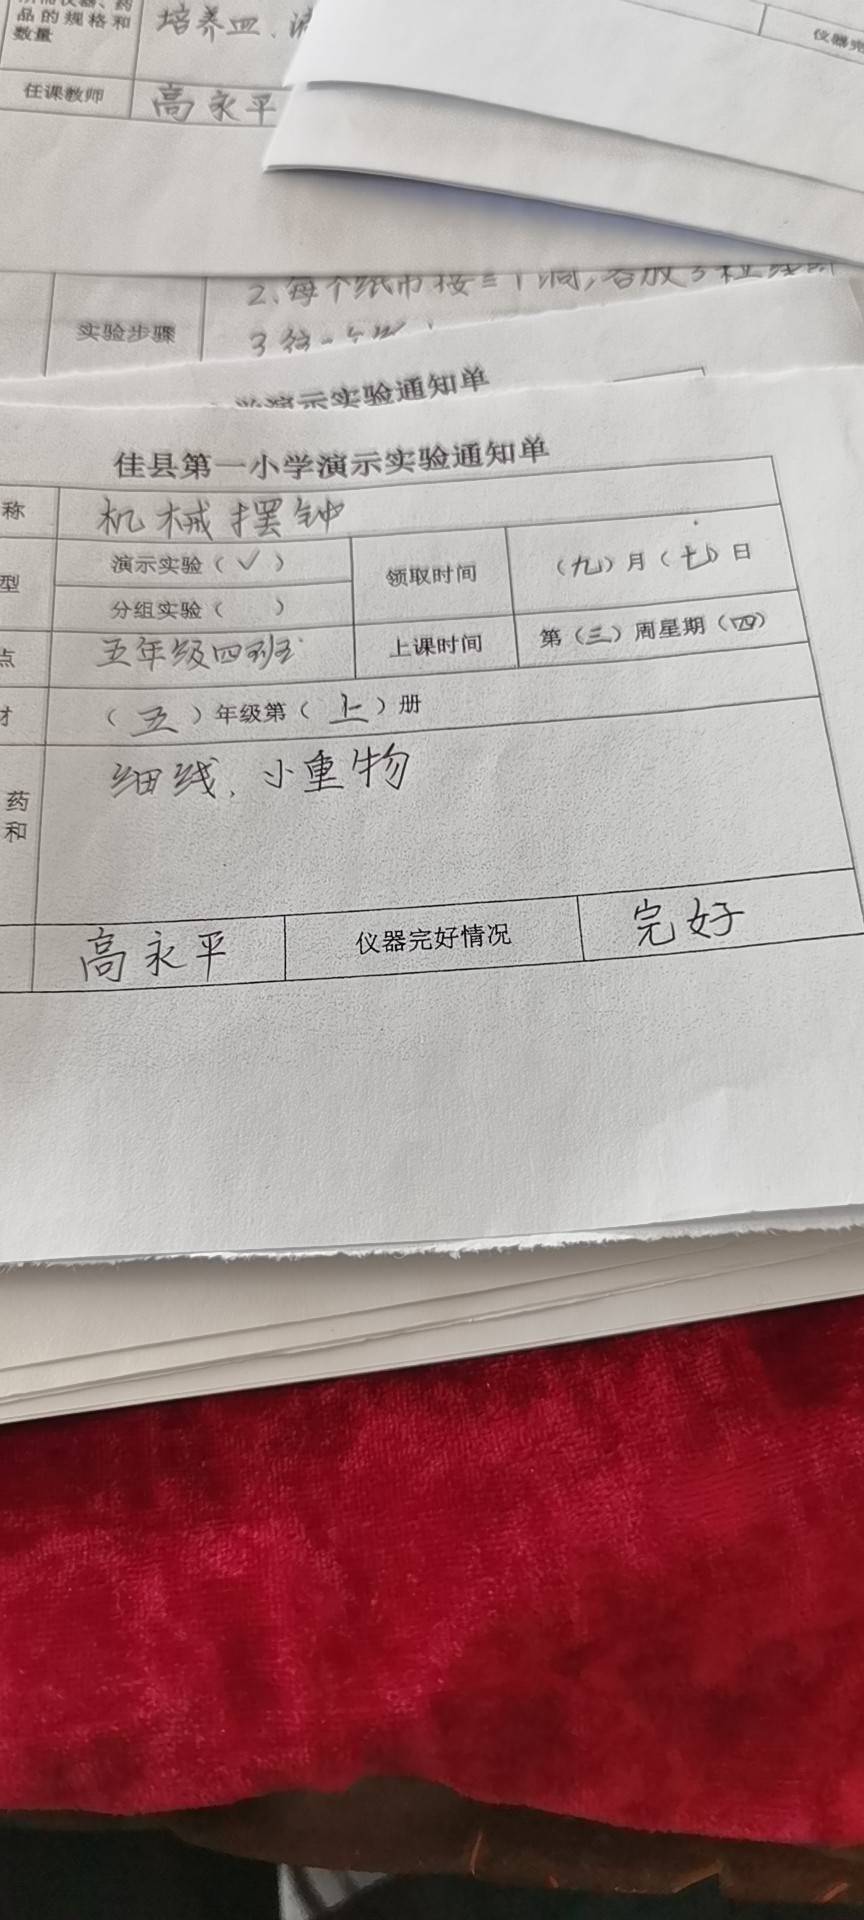 品的规格和 培养皿、
数量
仪器完
任课教师 高永平
2、每个纸巾
实验步骤
演示实验通知单
佳县第一小学演示实验通知单
称 机械摆钟
型 演示实验（✓） 领取时间 （九）月（七）日
分组实验（ ）
点 五年级四班 上课时间 第（三）周星期（四）
才 （五）年级第（上）册
细线、小重物
药
和
高永平 仪器完好情况 完好